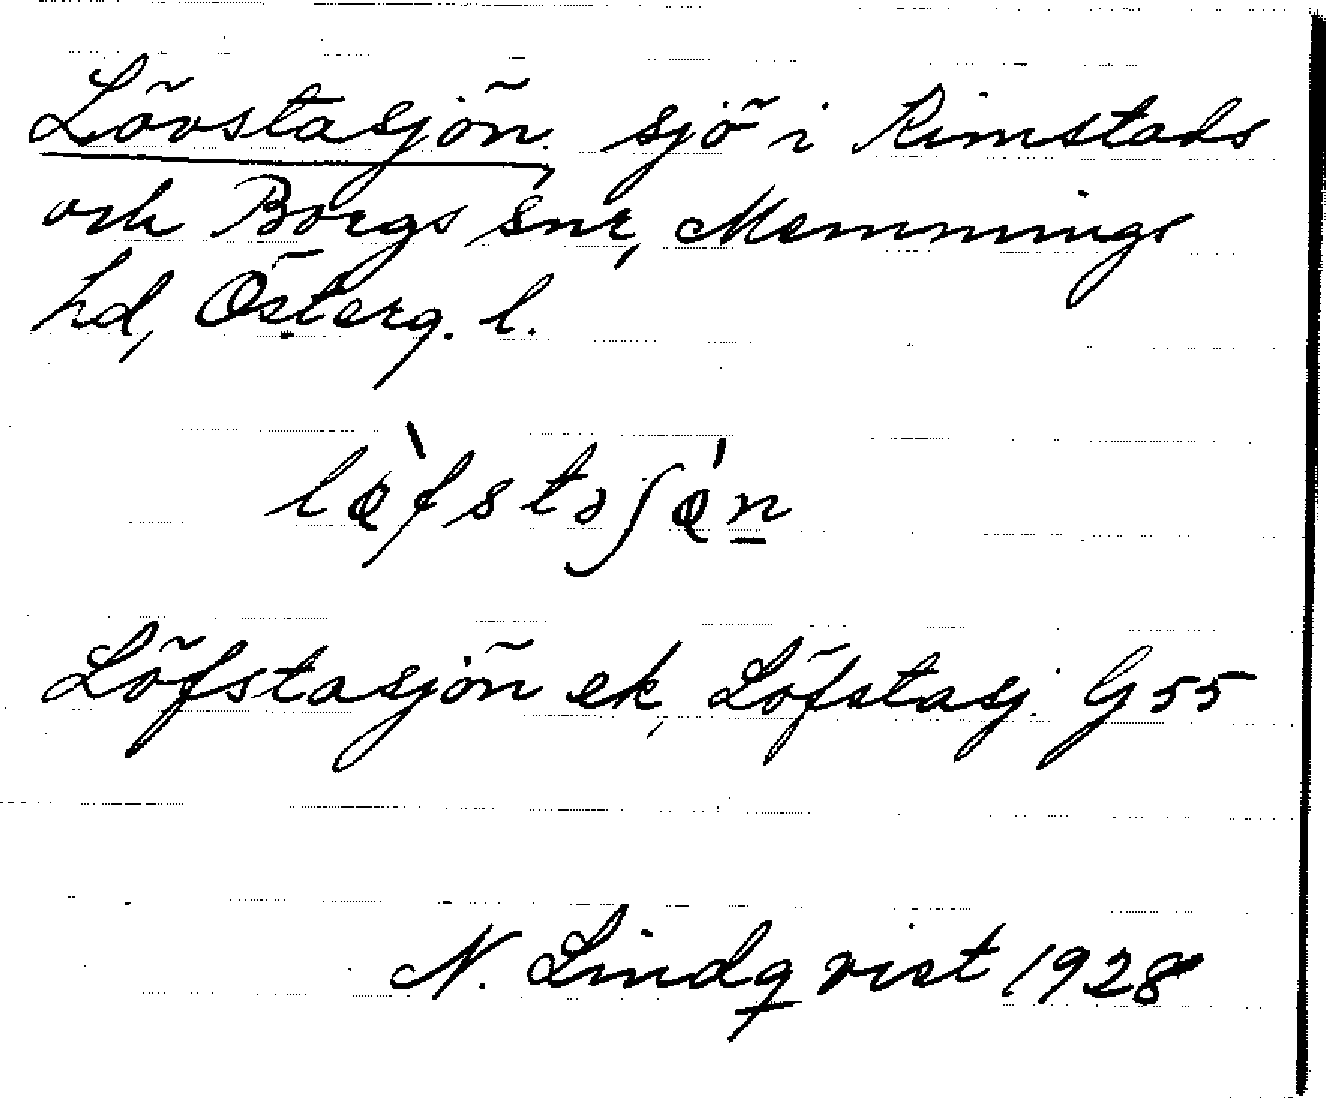 Lövstasjön, sjö i Kimstads
och Borgs snr, Memmings
hd, Österg. l.
lø̀fstəʃø̍n
Löfstasjön ek, Löfstasj. G 55
N. Lindqvist 1928